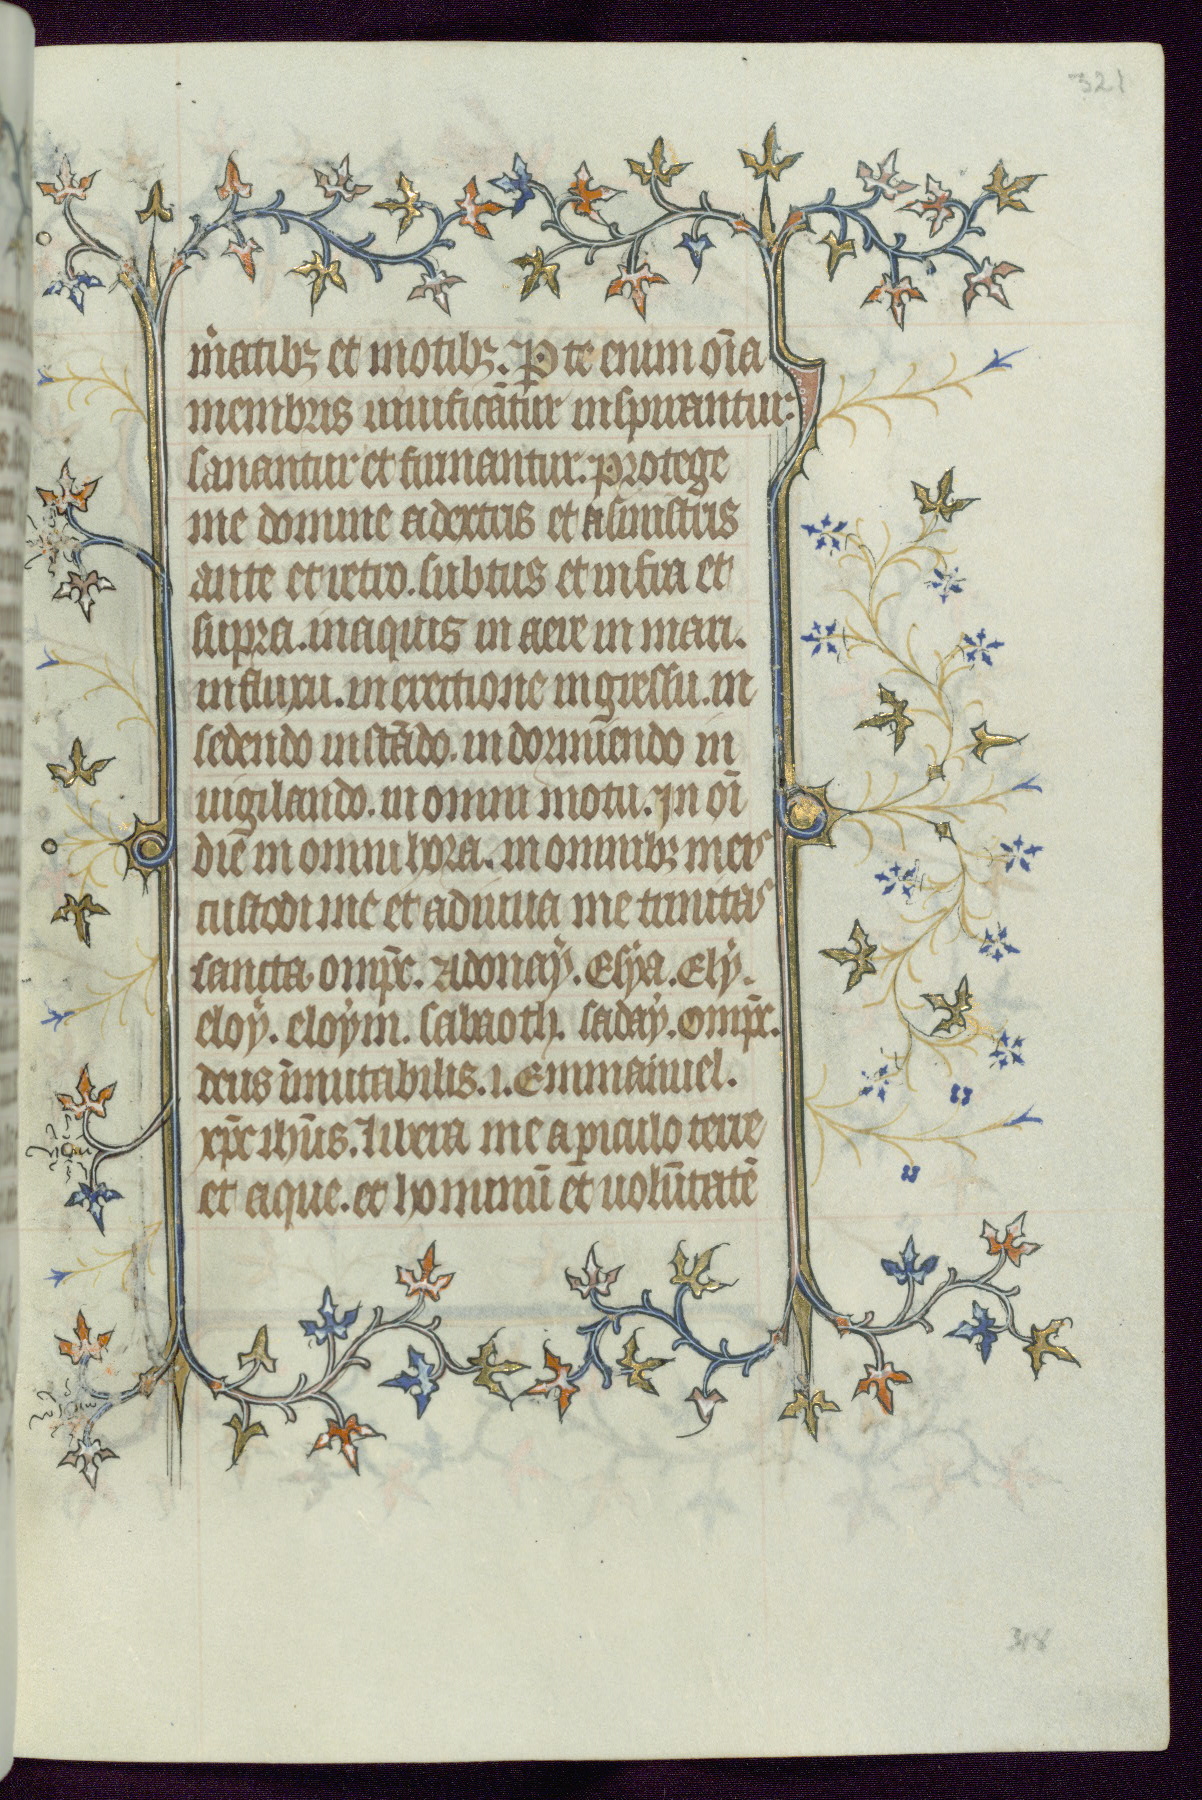 321
m̃atibꝫ et motibꝫ. P te enim oı̃a
membris uiuificãtur inspirantur:
sanantur et firmantur. Protege
me domine adextris et asinistris
ante et retro. subtus et infra et
supra. inaquis in aere in mari.
influxu. in erectione ingressu. in
sedendo instãdo. in dormiendo in
uigilando. in omni motu. In oı̃
die in omni hora. in omnibꝫ meis
custodi me et adiuua me trinitas
sancta omp̃c. Adonaÿ. Elẏa. Elẏ.
eloẏ. eloẏm. sabaoth. saday. omp̃c.
deus ı̃mutabilis. i. Emmanuel.
xp̃c ih̃us. Libera me a ꝑiculo terre
et aque. et hominũ et uolũtatẽ
318